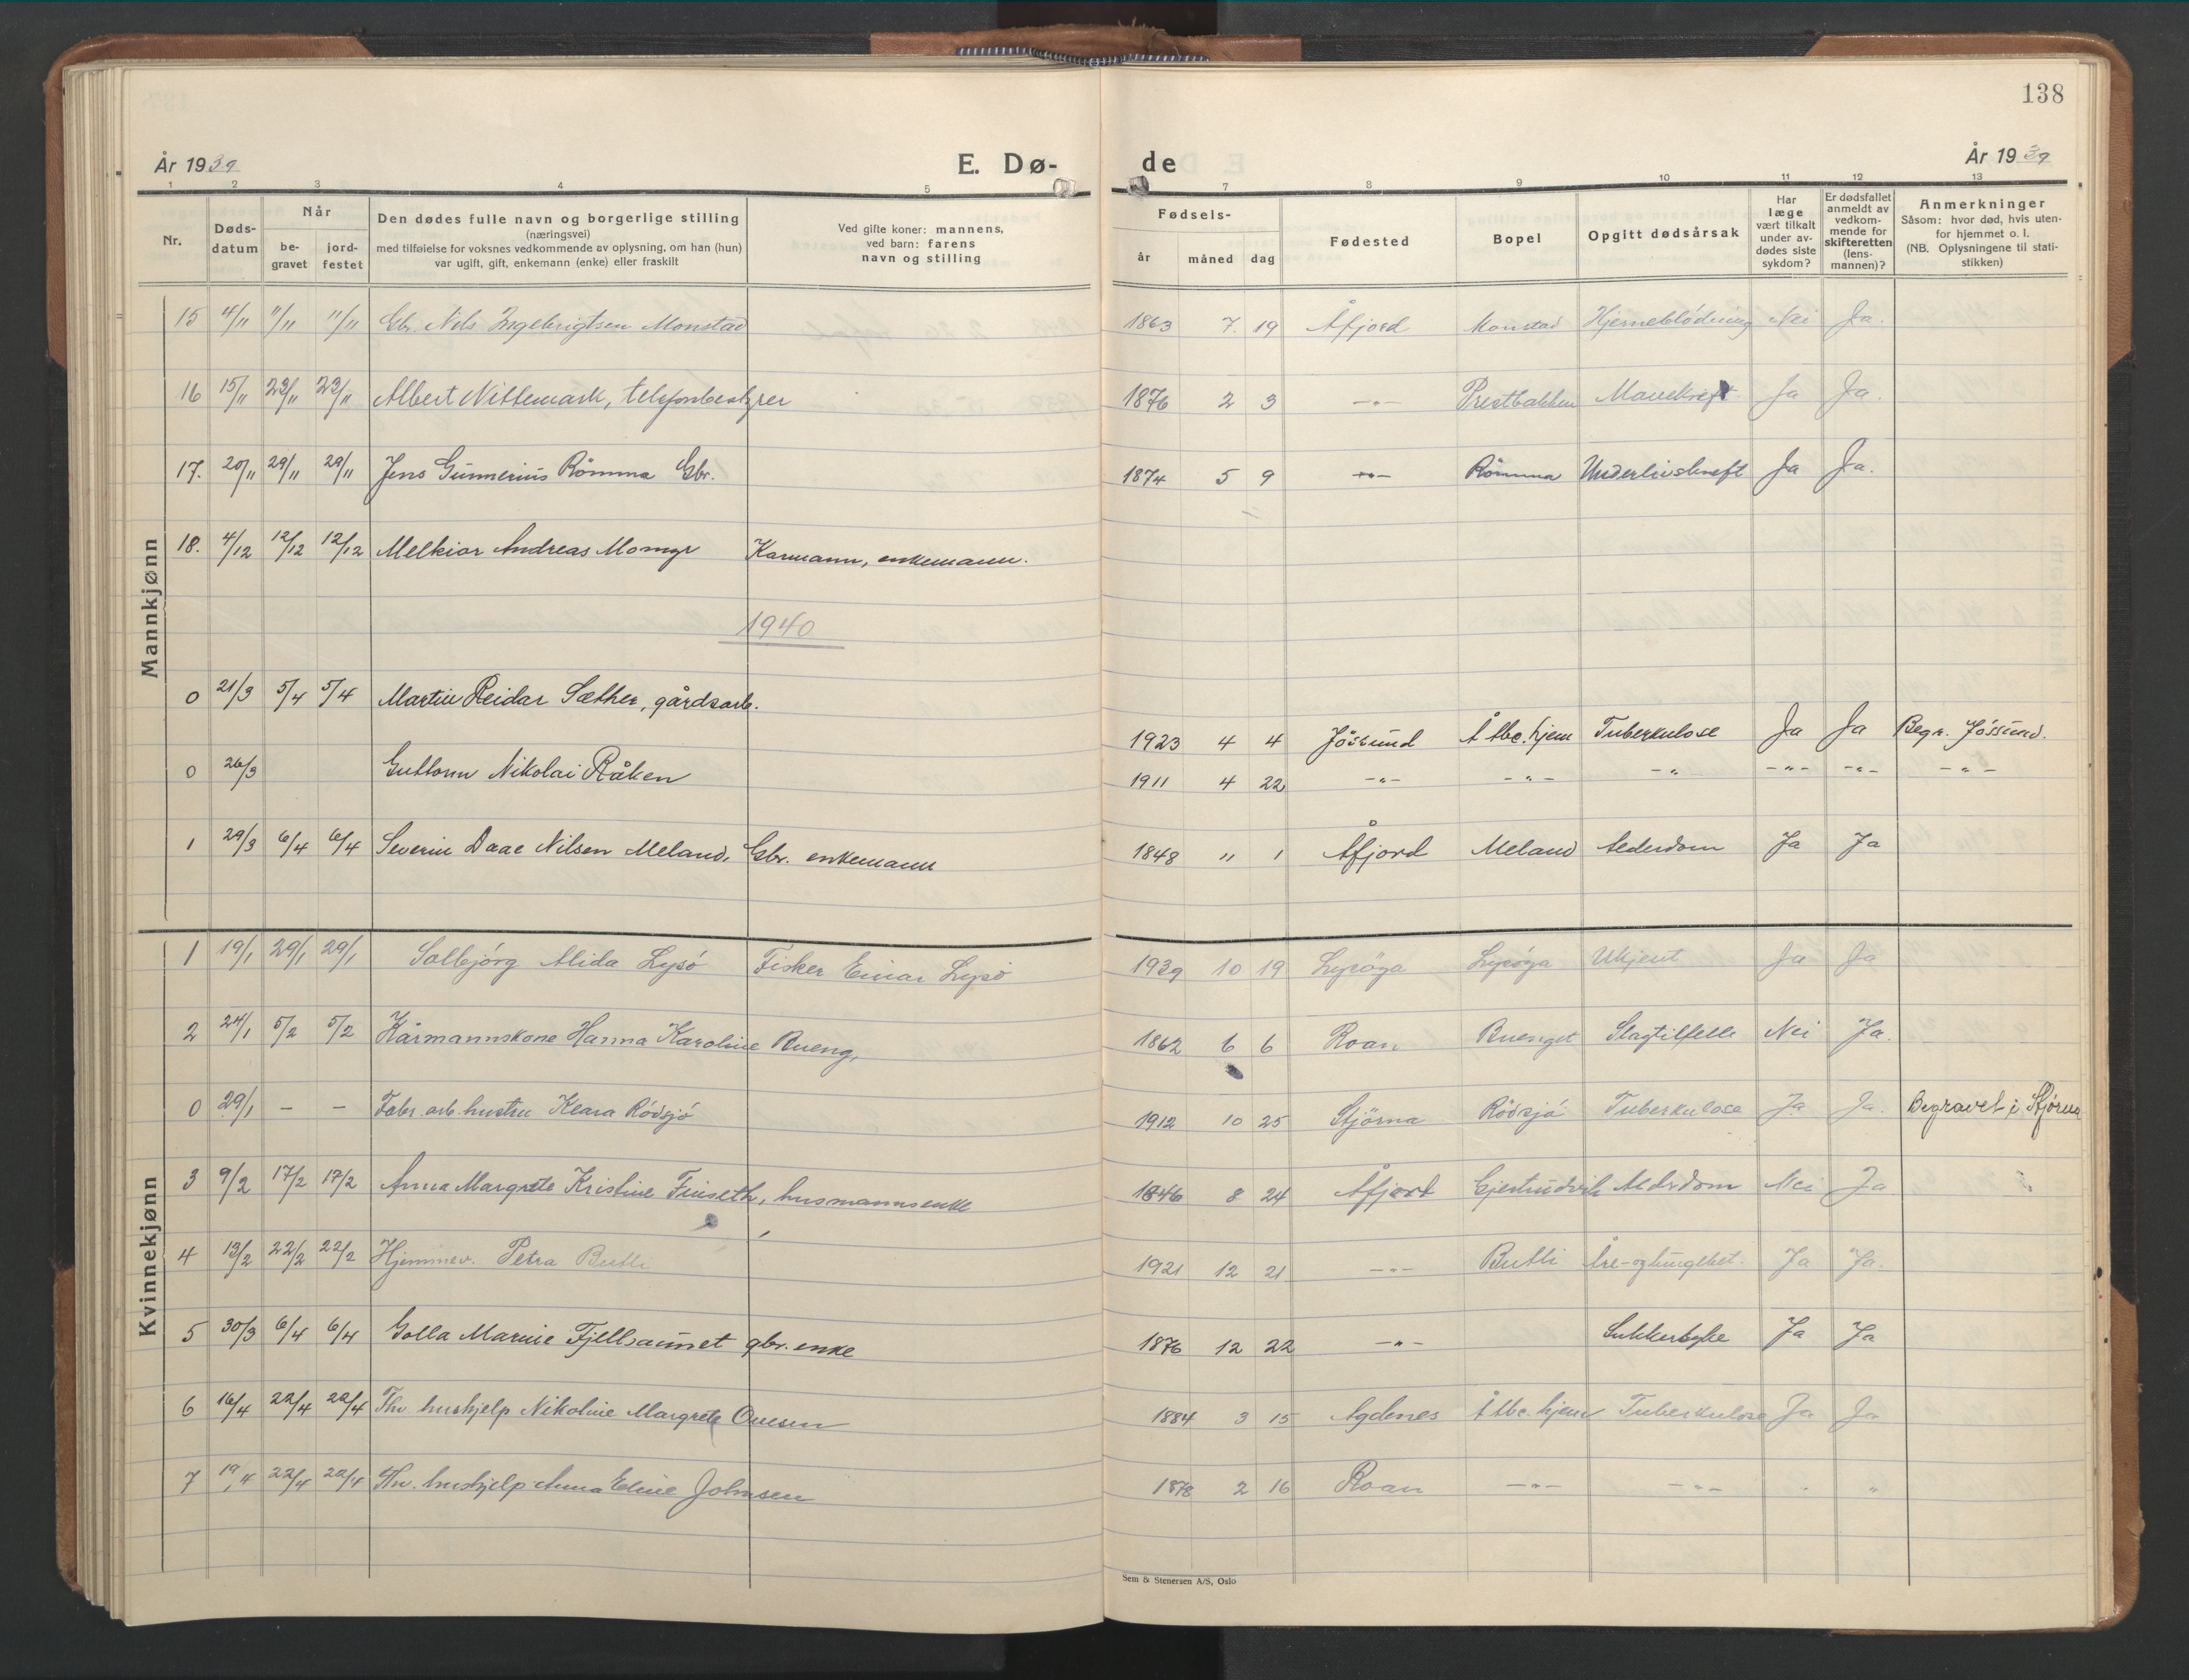 138
År 1939 E. Dø- de År 1939
1 2 3 4 5 7 8 9 10 11 12 13
Nr. Døds-datum Når be-gravet jord-festet Den dødes fulle navn og borgerlige stilling (næringsvei) med tilføielse for voksnes vedkommende av oplysning, om han (hun) var ugift, gift, enkemann (enke) eller fraskilt Ved gifte koner: mannens, ved barn: farens navn og stilling Fødsels- år måned dag Fødested Bopel Opgitt dødsårsak Har læge vært tilkalt under av-dødes siste sykdom? Er dødsfallet anmeldt av vedkom-mende for skifteretten (lens-mannen)? Anmerkninger Såsom: hvor død, hvis uten-for hjemmet o. l. (NB. Oplysningene til stati-stikken)
Mannkjønn
15 4/11 11/11 11/11 Gbr. Nils Ingebrigtsen Monstad 1863 7. 19 Åfjord Monstad Hjerneblödning Nei Ja.
16 15/11 23/11 23/11 Albert Nittemark, telefonbestyrer 1876 2 3 -"- Prestbakken Mavekreft Ja Ja.
17. 20/11 29/11 29/11 Jens Gunnerius Römma Gbr. 1874 5 9 -"- Römma Underlivskreft Ja Ja.
18. 4/12 12/12 12/12 Melkior Andreas Momyr Karmann, enkemann.
1940
0 21/3 5/4 5/4 Martin Reidar Sæther, gårdsarb. 1923 4 4 Jössund Å tbc. hjem Tuberkulose Ja Ja Begr. Jössund.
0 26/3 Guttorm Nikolai Råken 1911 4 22 -"- -"- -"- -"- -"- -"-
1 29/3 6/4 6/4 Severin Daae Nilsen Meland, Gbr. enkemann 1848 11 1 Åfjord Meland Alderdom Ja Ja
Kvinnekjønn
1 19/1 29/1 29/1 Solbjörg Alida Lysö Fisker Einar Lysö 1939 10 19 Lysöya Lysöya Ukjent Ja Ja
2 24/1 5/2 5/2 Kårmannskone Hanna Karoline Bueng, 1862 6 6 Roan Buenget Slagtilfelle Nei Ja.
0 29/1 - - Fabr. arb. hustru Klara Rödsjö 1912 10 25 Stjörna Rödsjö Tuberkulose Ja Ja. Begravet i Stjörna
3 9/2 17/2 17/2 Anna Margrete Kristine Finseth, husmannsenke 1846 8 24 Åfjord Gjertrudvik Alderdom Nei Ja
4 13/2 22/2 22/2 Hjemmev. Petra Butli 1921 12 21 -"- Butli Åre- og lungebet. Ja Ja.
5 30/3 6/4 6/4 Golla Marnie Fjellsaunet gbr. enke 1876 12 22 -"- Sukkersyke Ja Ja
6 16/4 22/4 22/4 Fhv. hushjelp Nikoline Margrete Ovesen 1884 3 15 Agdenes Å tbc. hjem Tuberkulose Ja Ja
7 19/4 22/4 22/4 Fhv. hushjelp Anna Eline Johnsen 1878 2 16 Roan -"- -"- " "
Sem & Stenersen A/S, Oslo